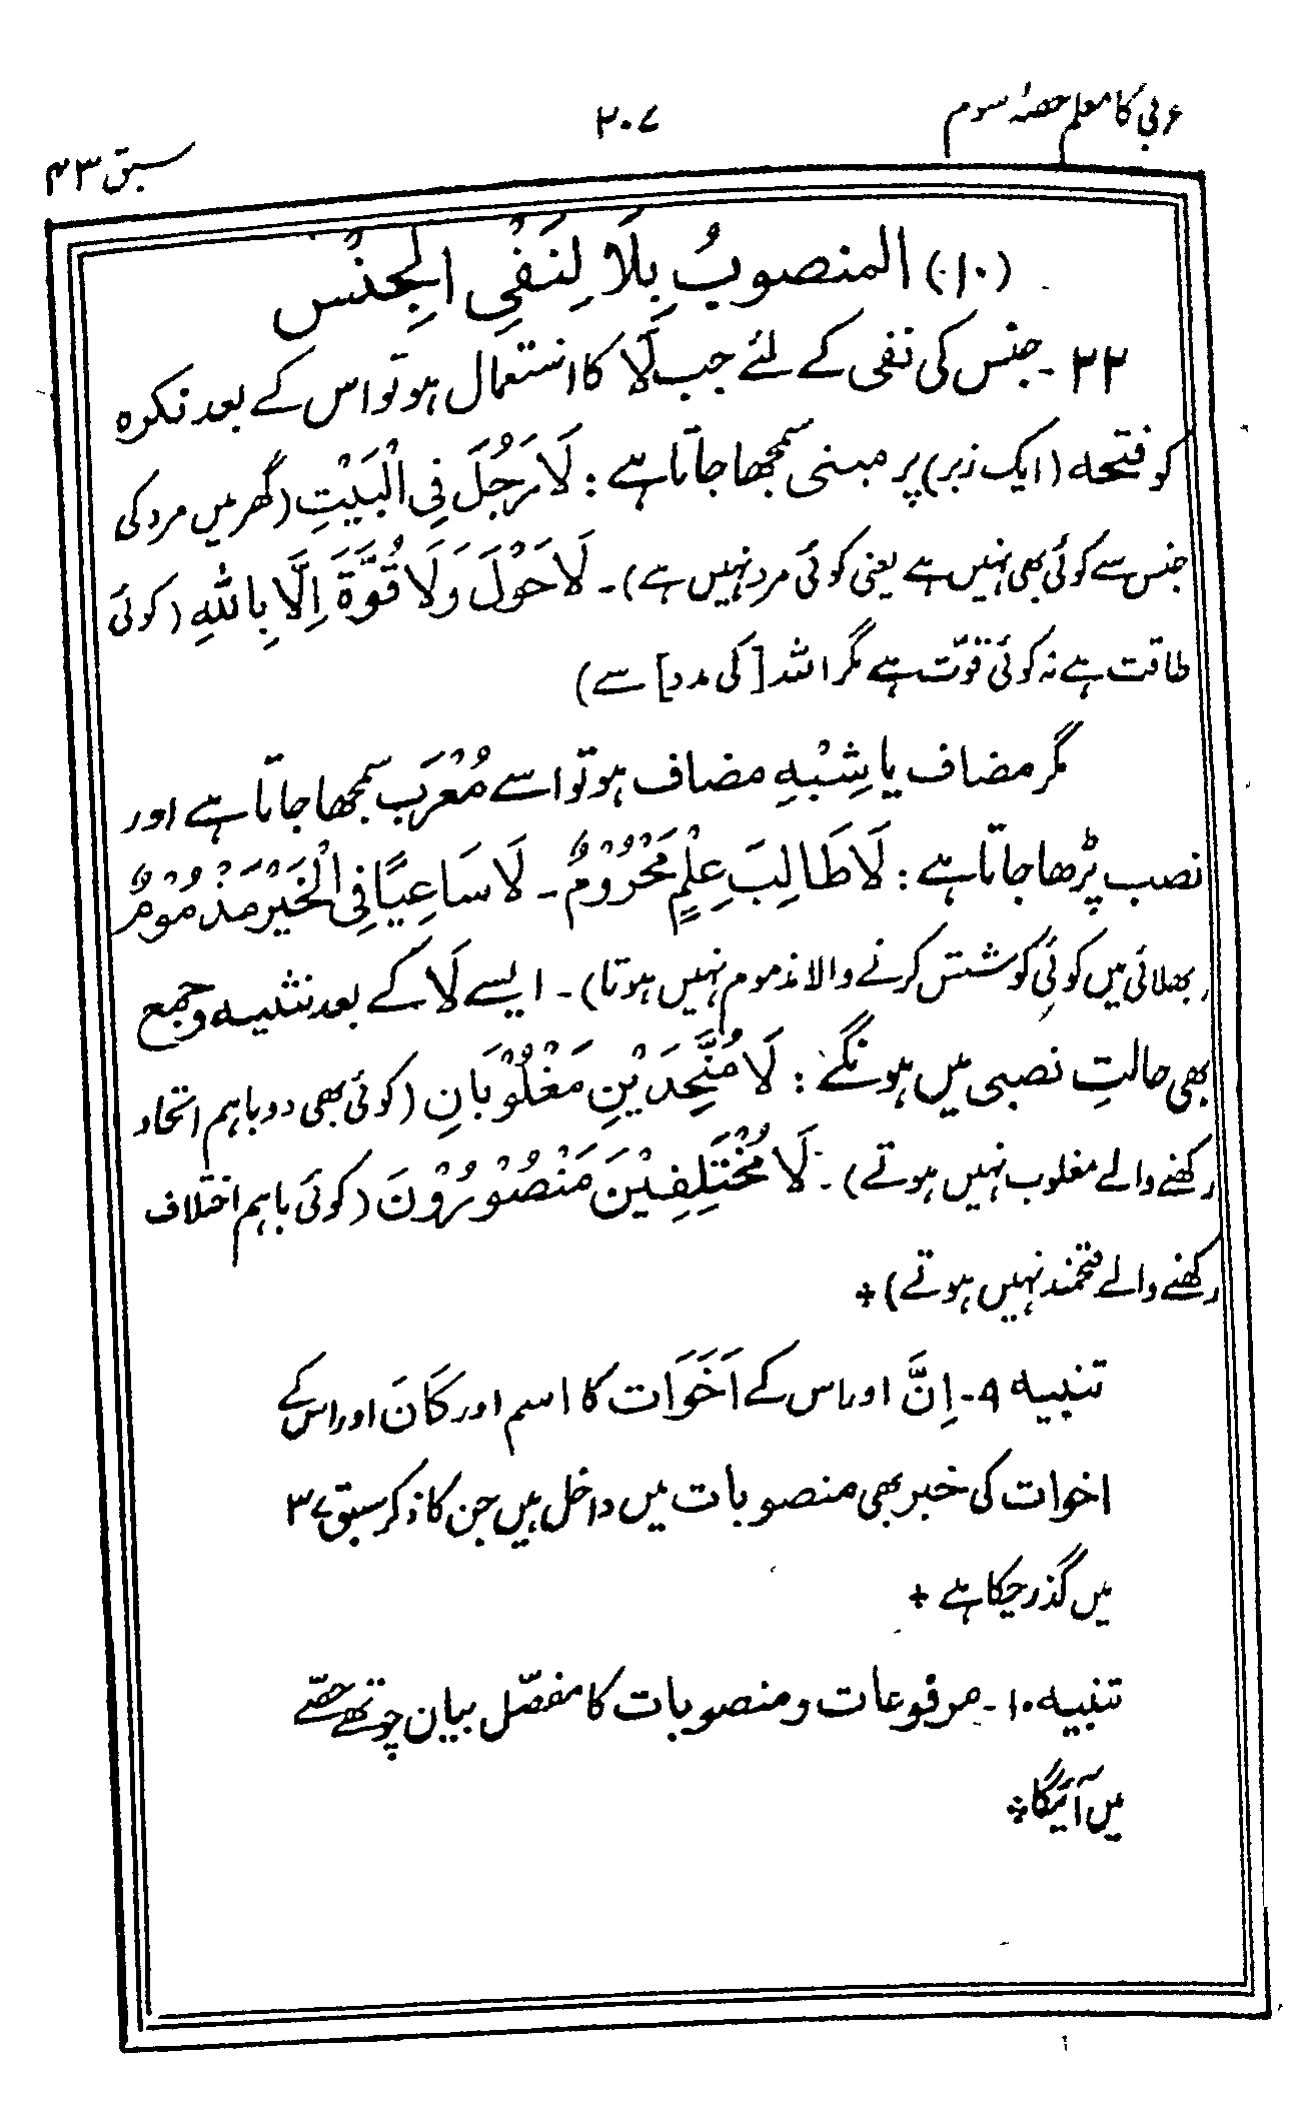 عربی کا معلم حصۂ سوم
۲۰۷
سبق ۴۳
(۱۰) المنصوبُ بِلَا لِنَفْیِ الْجِنْس
۲۲ - جنس کی نفی کے لئے جب لَا کا استعمال ہو تو اس کے بعد نکرہ
کو فتحہ (ایک زبر) پر مبنی سمجھا جاتا ہے : لَا رَجُلَ فِی الْبَیْتِ (گھر میں مرد کی
جنس سے کوئی بھی نہیں ہے یعنی کوئی مرد نہیں ہے)۔ لَا حَوْلَ وَلَا قُوَّةَ اِلَّا بِاللهِ (کوئی
طاقت ہے نہ کوئی قوّت ہے مگر اللہ [کی مدد] سے)
مگر مضاف یا شِبْهِ مضاف ہو تو اسے مُعْرَب سمجھا جاتا ہے اور
نصب پڑھا جاتا ہے : لَا طَالِبَ عِلْمٍ مَحْرُوْمٌ ۔ لَا سَاعِیًا فِی الْخَیْرِ مَذْمُوْمٌ
(بھلائی میں کوئی کوشش کرنے والا مذموم نہیں ہوتا)۔ ایسے لَا کے بعد تثنیہ و جمع
بھی حالتِ نصبی میں ہونگے : لَا مُتَّحِدَیْنِ مَغْلُوْبَانِ (کوئی بھی دو باہم اتحاد
رکھنے والے مغلوب نہیں ہوتے)۔ لَا مُخْتَلِفِیْنَ مَنْصُوْرُوْنَ (کوئی باہم اختلاف
رکھنے والے فتحمند نہیں ہوتے) +
تنبیہ ۹ - اِنَّ اور اس کے اَخَوَات کا اسم اور کَانَ اور اس کے
اخوات کی خبر بھی منصوبات میں داخل ہیں جن کا ذکر سبق ۳۷
میں گذر چکا ہے +
تنبیہ ۱۰ - مرفوعات و منصوبات کا مفصّل بیان چوتھے حصّے
میں آئیگا +